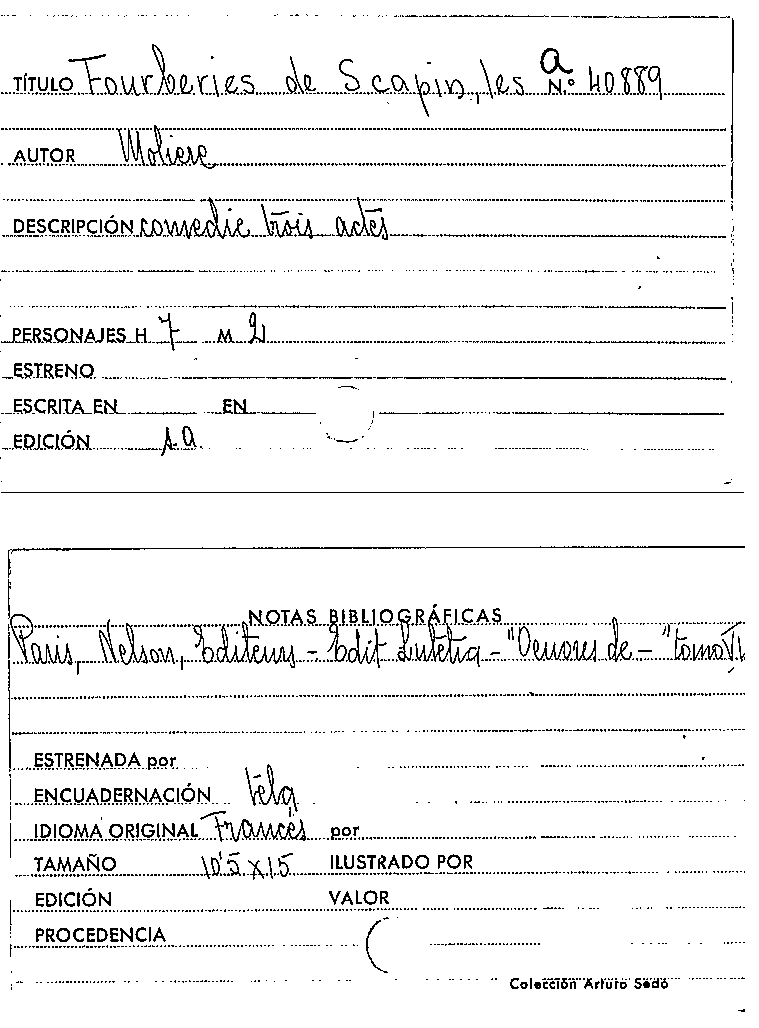 a
TÍTULO Fourberies de Scapin, les N.º 40889
AUTOR Moliere
DESCRIPCIÓN comedie trois actes
PERSONAJES H 7 M 2
ESTRENO
ESCRITA EN EN
EDICIÓN s.a.
NOTAS BIBLIOGRÁFICAS
Paris, Nelson, Editeurs - Edit Lutetia - "Oeuvres de - "tomo VI
ESTRENADA por
ENCUADERNACIÓN tela
IDIOMA ORIGINAL Francés por
TAMAÑO 10'5 x 15 ILUSTRADO POR
EDICIÓN VALOR
PROCEDENCIA
Colección Arturo Sedó